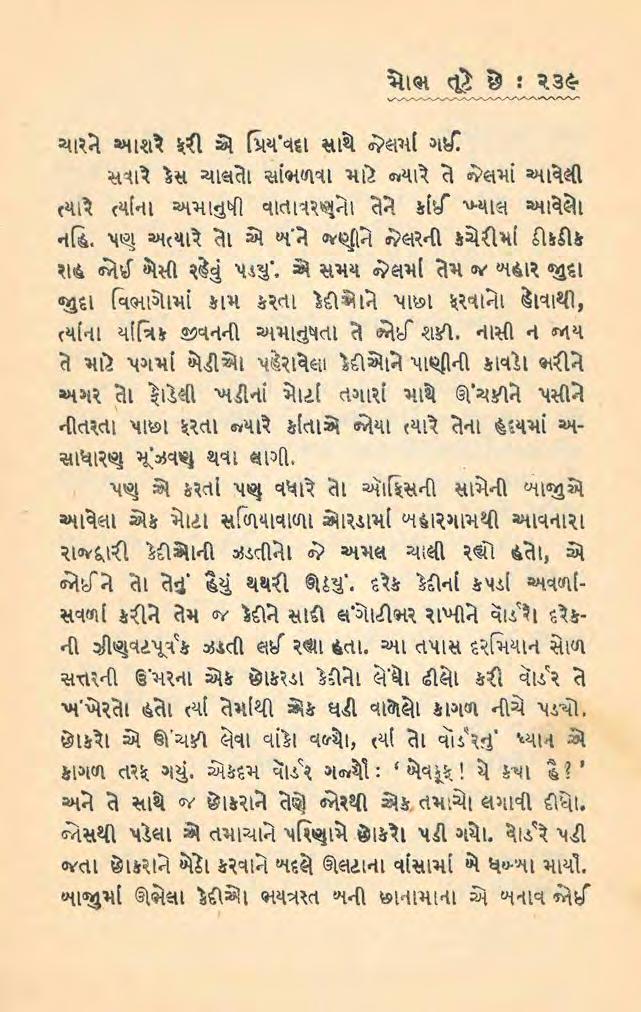 મોભ તૂટે છે : ૨૩૯
ચારને આશરે ફરી એ પ્રિયંવદા સાથે જેલમાં ગઈ.
સવારે કેસ ચાલતો સાંભળવા માટે જ્યારે તે જેલમાં આવેલી
ત્યારે ત્યાંના અમાનુષી વાતાવરણનો તેને કાંઈ ખ્યાલ આવેલો
નહિ. પણ અત્યારે તો એ બંને જણીને જેલરની કચેરીમાં ઠીકઠીક
રાહ જોઈ બેસી રહેવું પડયું. એ સમય જેલમાં તેમ જ બહાર જુદા
જુદા વિભાગોમાં કામ કરતા કેદીઓને પાછા ફરવાનો હોવાથી,
ત્યાંના યાંત્રિક જીવનની અમાનુષતા તે જોઈ શકી. નાસી ન જાય
તે માટે પગમાં બેડીઓ પહેરાવેલા કેદીઓને પાણીની કાવડો ભરીને
અગર તો ફોડેલી ખડીનાં મોટાં તગારાં માથે ઊંચકીને પસીને
નીતરતા પાછા ફરતા જ્યારે કાંતાએ જોયા ત્યારે તેના હૃદયમાં અ-
સાધારણ મૂંઝવણ થવા લાગી.
પણ એ કરતાં પણ વધારે તો ઑફિસની સામેની બાજુએ
આવેલા એક મોટા સળિયાવાળા ઓરડામાં બહારગામથી આવનારા
રાજદ્વારી કેદીઓની ઝડતીનો જે અમલ ચાલી રહ્યો હતો, એ
જોઈને તો તેનું હૈયું થથરી ઊઠયું. દરેક કેદીનાં કપડાં અવળાં-
સવળાં કરીને તેમ જ કેદીને સાદી લંગોટીભર રાખીને વૉર્ડરો દરેક-
ની ઝીણવટપૂર્વક ઝડતી લઈ રહ્યા હતા. આ તપાસ દરમિયાન સોળ
સત્તરની ઉંમરના એક છોકરડા કેદીનો લેંઘો ઢીલો કરી વૉર્ડર તે
ખંખેરતો હતો ત્યાં તેમાંથી એક ઘડી વાળેલો કાગળ નીચે પડયો.
છોકરો એ ઊંચકી લેવા વાંકો વળ્યો, ત્યાં તો વૉર્ડરનું ધ્યાન એ
કાગળ તરફ ગયું. એકદમ વૉર્ડર ગર્જ્યો : ‘ બેવકૂફ ! યે ક્યા હૈ ? ’
અને તે સાથે જ છોકરાને તેણે જોરથી એક તમાચો લગાવી દીધો.
જોસથી પડેલા એ તમાચાને પરિણામે છોકરો પડી ગયો. વૉર્ડરે પડી
જતા છોકરાને બેઠો કરવાને બદલે ઊલટાના વાંસામાં બે ધબ્બા માર્યા.
બાજુમાં ઊભેલા કેદીઓ ભયત્રસ્ત બની છાનામાના એ બનાવ જોઈ